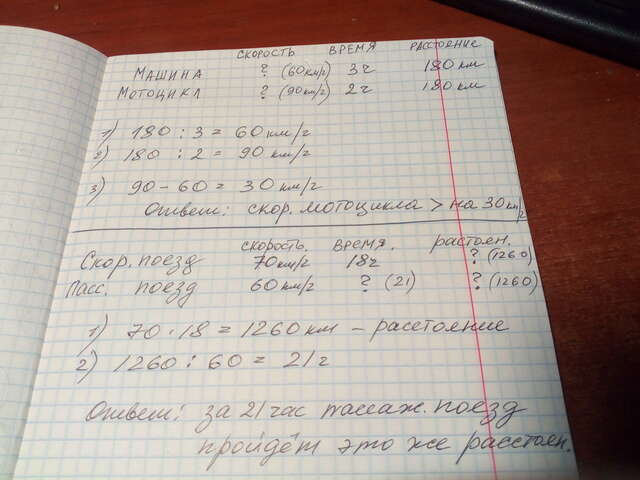 СКОРОСТЬ ВРЕМЯ РАССТОЯНИЕ
МАШИНА ? (60км/г) 3ч 180 км
МОТОЦИКЛ ? (90км/г) 2ч 180 км
1) 180 : 3 = 60 км/г
2) 180 : 2 = 90 км/г
3) 90 - 60 = 30 км/г
Ответ: скор. мотоцикла > на 30 км/г
СКОРОСТЬ. ВРЕМЯ. растоян.
Скор. поезд 70км/г 18ч ? (1260)
Пасс. поезд 60 км/г ? (21) ? (1260)
1) 70 · 18 = 1260 км – расстояние
2) 1260 : 60 = 21 г
Ответ: за 21 час пассаж. поезд
пройдёт это же расстоян.